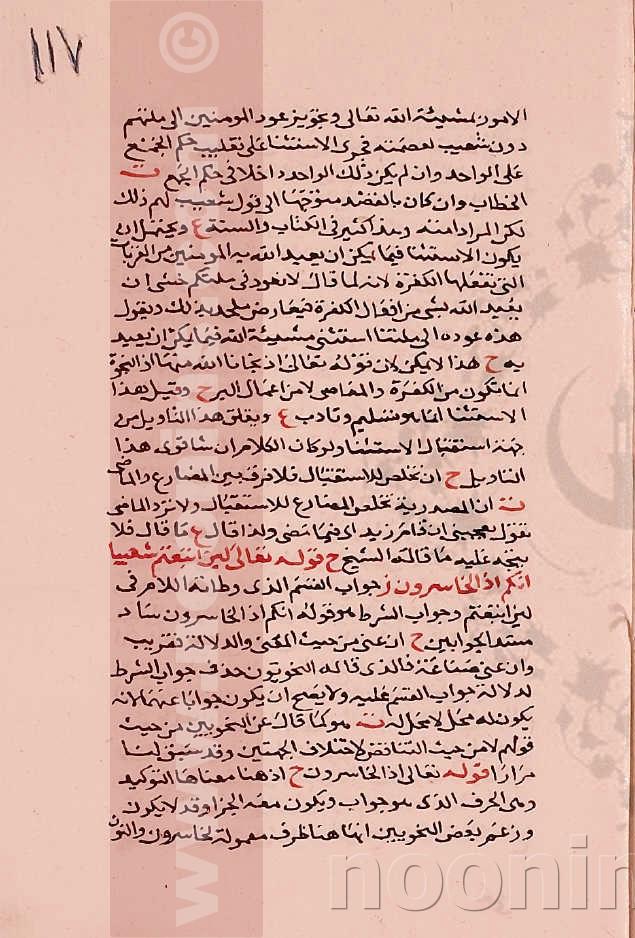 ١١٧
الامور لمشيئة الله تعالى وتجويز عود المومنين الى ملتهم
دون شعيب لعصمته فجرى الاستثنا على تغليب حكم الجمع
على الواحد وان لم يكن ذلك الواحد داخلا في حكم الجمع ت
الخطاب وان كان بالقصد متوجها الى قول شعيب لهم ذلك
لكن المراد امته وهذا كثير في الكتاب والسنة ع ويحتمل ان
يكون الاستثنا فيما يمكن ان يعبد الله به المومنين من القربات
التي تفعلها الكفرة لانه لما قال لا نعود في ملتكم خشى ان
يعبد الله بشى من افعال الكفرة فيعارض ملحد بذلك ويقول
هذه عوده الى ملتنا استثنى مشيئة الله فيما يمكن ان يعبد
به ح هذا لا يمكن لان قوله تعالى اذ نجانا الله منها اذ النجوة
انما تكون من الكفرة والمعاصى لا من اعمال البر ح وقيل هذا
الاستثنا انما هو تسليم وتادب ع ويقلق هذا التاويل من
جهة استقبال الاستثنا ولو كان الكلام ان شا قوى هذا
التاويل ح ان تخلص للاستقبال فلا فرق بين المضارع والماضى
ت ان المصدرية تخلص المضارع للاستقبال ولا ترد الماضى
تقول يعجبنى ان قام زيد اى فيما مضى ولذا قال ع ما قال فلا
يتجه عليه ما قاله الشيخ ح قوله تعالى لين اتبعتم شعيبا
انكم اذا لخاسرون ز جواب القسم الذى وطاته اللام فى
لين اتبعتم وجواب الشرط هو قوله انكم اذا لخاسرون ساد
مسد الجوابين ح ان عنى من حيث المعنى والدلالة فقريب
وان عنى صناعة فالذى قاله النحويون حذف جواب الشرط
لدلالة جواب القسم عليه ولا يصح ان يكون جوابا عنهما لانه
يكون له محل لا محل له ت هو كما قال عن النحويين من حيث
قولهم لا من حيث التناقض لاختلاف الجهتين وقد سبق لنا
مرارا قوله تعالى اذا لخاسرون ح اذ هنا معناها التوكيد
وهى الحرف الذى هو جواب ويكون معه الجزا وقد لا يكون
وزعم بعض النحويين انها هنا ظرف معمولة لخاسرون والنون
©
www.
noonin